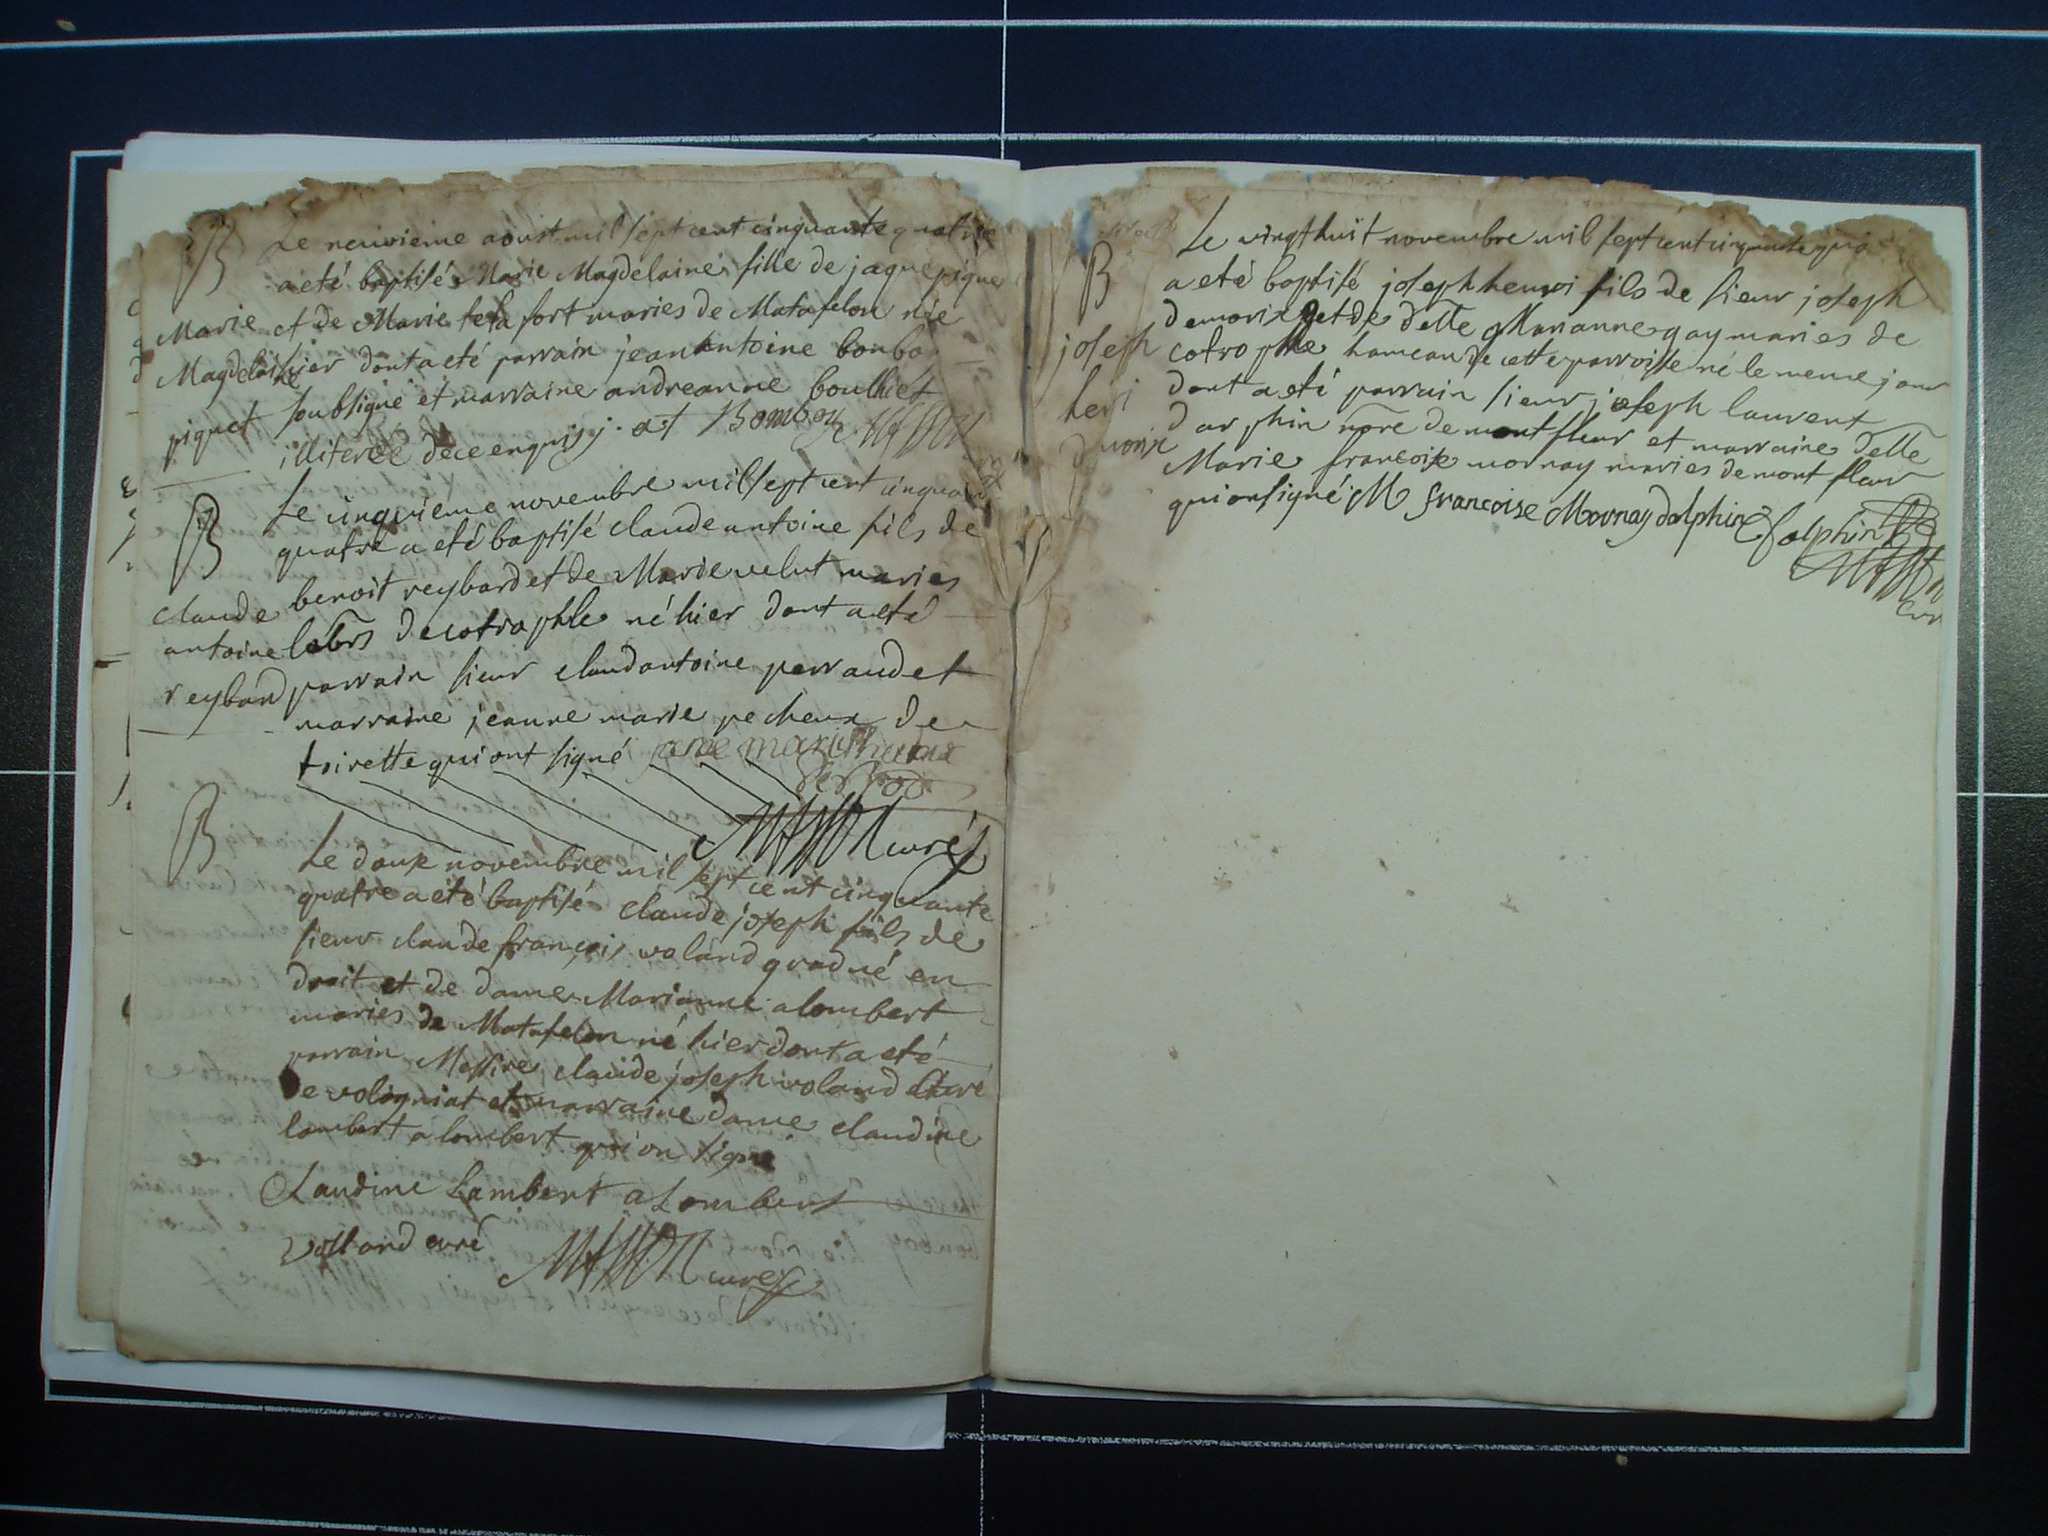 B
Le neuvieme aoust mil sept cent cinquante quatre
a eté baptisée Marie Magdelaine fille de jaque pique
Marie et de Marie tete fort maries de Matafelon née
Magdelaine hier dont a eté parrain jean antoine bonbo
piquet soubsigné et marraine andreanne boulliet
illiterée de ce enquis j. at Bomboy MASSON
B
Le cinquieme novembre mil sept cent cinquante
quatre a eté baptisé claude antoine fils de
claude benoit reybard et de Marie velut maries
antoine labrs de cotrophle né hier dont a eté
reybard parrain sieur claud antoine perraud et
marraine jeanne marie pecheux de
toirette qui ont signé
MASSON curé
B
Le douze novembre mil sept cent cinquante
quatre a eté baptisé claude joseph fils de
sieur claude françois voland gradué en
droit et de dame Marianne alombert
maries de Matafelon né hier dont a eté
parrain Messire claude joseph voland curé
de vologniat et marraine dame claudine
lambert alombert qui on signé
Claudine Lambert alombert
Volland curé MASSON curé
Le vingt huit novembre mil sept cent cinquante qua
B a eté baptisé joseph henri fils de sieur joseph
demorix et de delle Marianne gay maries de
joseph cotrophle hameau de cette parroisse né le meme jour
heri dont a eté parrain sieur joseph laurent
dmorix darphin nore de montfleur et marraine delle
Marie françoise mornay maries de mont fleur
qui on signé M francoise Mornay dalphin Dalphin
MASSON
cur